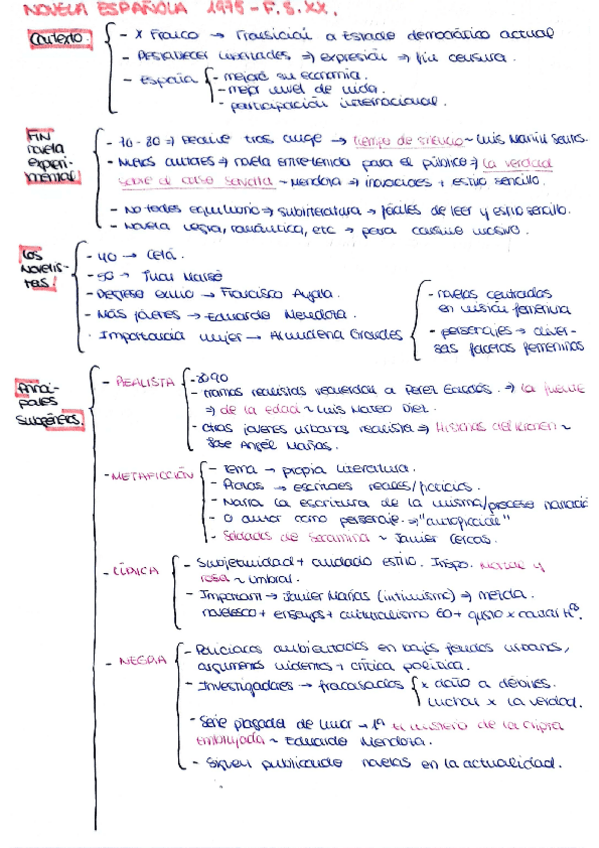 NOVELA ESPAÑOLA 1975 - F.S.XX.
Contexto.
- x Franco → Transición a Estado democrático actual
- Restablecer libertades ⇒ expresión ⇒ fin censura.
- España
- mejoró su economía.
- mejor nivel de vida.
- participación internacional.
Fin novela experimental
- 70-80 ⇒ Declive tras auge → Tiempo de silencio ~ Luis Martín Santos.
- Nuevos autores ⇒ novela entretenida para el público ⇒ La verdad
sobre el caso Savolta ~ Mendoza ⇒ innovaciones + estilo sencillo.
- No todos equilibrio ⇒ subliteratura → fáciles de leer y estilo sencillo.
- Novela negra, romántica, etc → para consumo masivo.
Los novelistas.
- 40 → Cela.
- 50 → Juan Marsé
- Regreso exilio → Francisco Ayala.
- Más jóvenes → Eduardo Mendoza.
· Importancia mujer → Almudena Grandes
- novelas centradas
en visión femenina
- personajes → diver-
sas facetas femeninas
subgéneros.
- REALISTA
- 80 90
- tramas realistas recuerdan a Perez Galdós. ⇒ La fuente
⇒ de la edad ~ Luis Mateo Díez.
- otras jóvenes urbanos realista ⇒ Historias del Kronen ~
Jose Angel Mañas.
- METAFICCIÓN
- tema → propia literatura.
- → escritores reales/ficticios.
- Narra la escritura de la misma/proceso
- O autor como personaje. ⇒ "autoficción"
- Soldados de Salamina ~ Javier Cercas.
- LÍRICA
- Subjetividad + cuidado estilo. Inspo. Mortal y
rosa ~ Umbral.
- Important → Javier Marías (intimismo) ⇒ mezcla.
novelesco + ensayos + culturalismo 60 + gusto x
- NEGRA
- Policiacos ambientados en bajos fondos urbanos,
argumentos violentos + crítica política.
- Investigadores → fracasados
x daño a débiles.
luchar x la verdad.
- Serie plagada de humor → 1º El misterio de la cripta
embrujada ~ Eduardo Mendoza.
- Siguen publicando novelas en la actualidad.